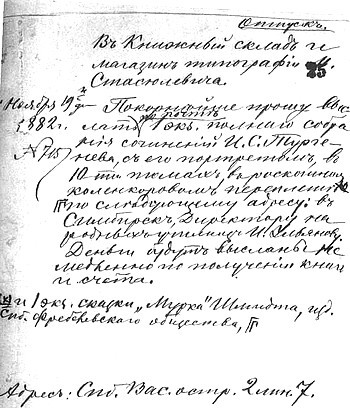 Отпускъ.
Въ Книжный складъ и
магазинъ типографіи М.
Стасюлевича.
Ноября 19 дня
1882 г.
Покорнѣйше прошу выс
лать на почтѣ 1 экз. полнаго собра
нія сочиненій И. С. Турге-
нева, съ его портретомъ, въ
10 ти томахъ, въ роскошномъ
коленкоровомъ переплетѣ
по слѣдующему адресу: въ
Симбирскъ, Директору на-
родныхъ училищъ И. Ульянову.
Деньги будутъ высланы не-
медленно по полученіи книги
и счета.
и 1 экз. сказки "Мурка" Шмидта, изд.
Спб. Фребелевскаго общества,
Адресъ: Спб. Вас. остр. 2 лин. 7.